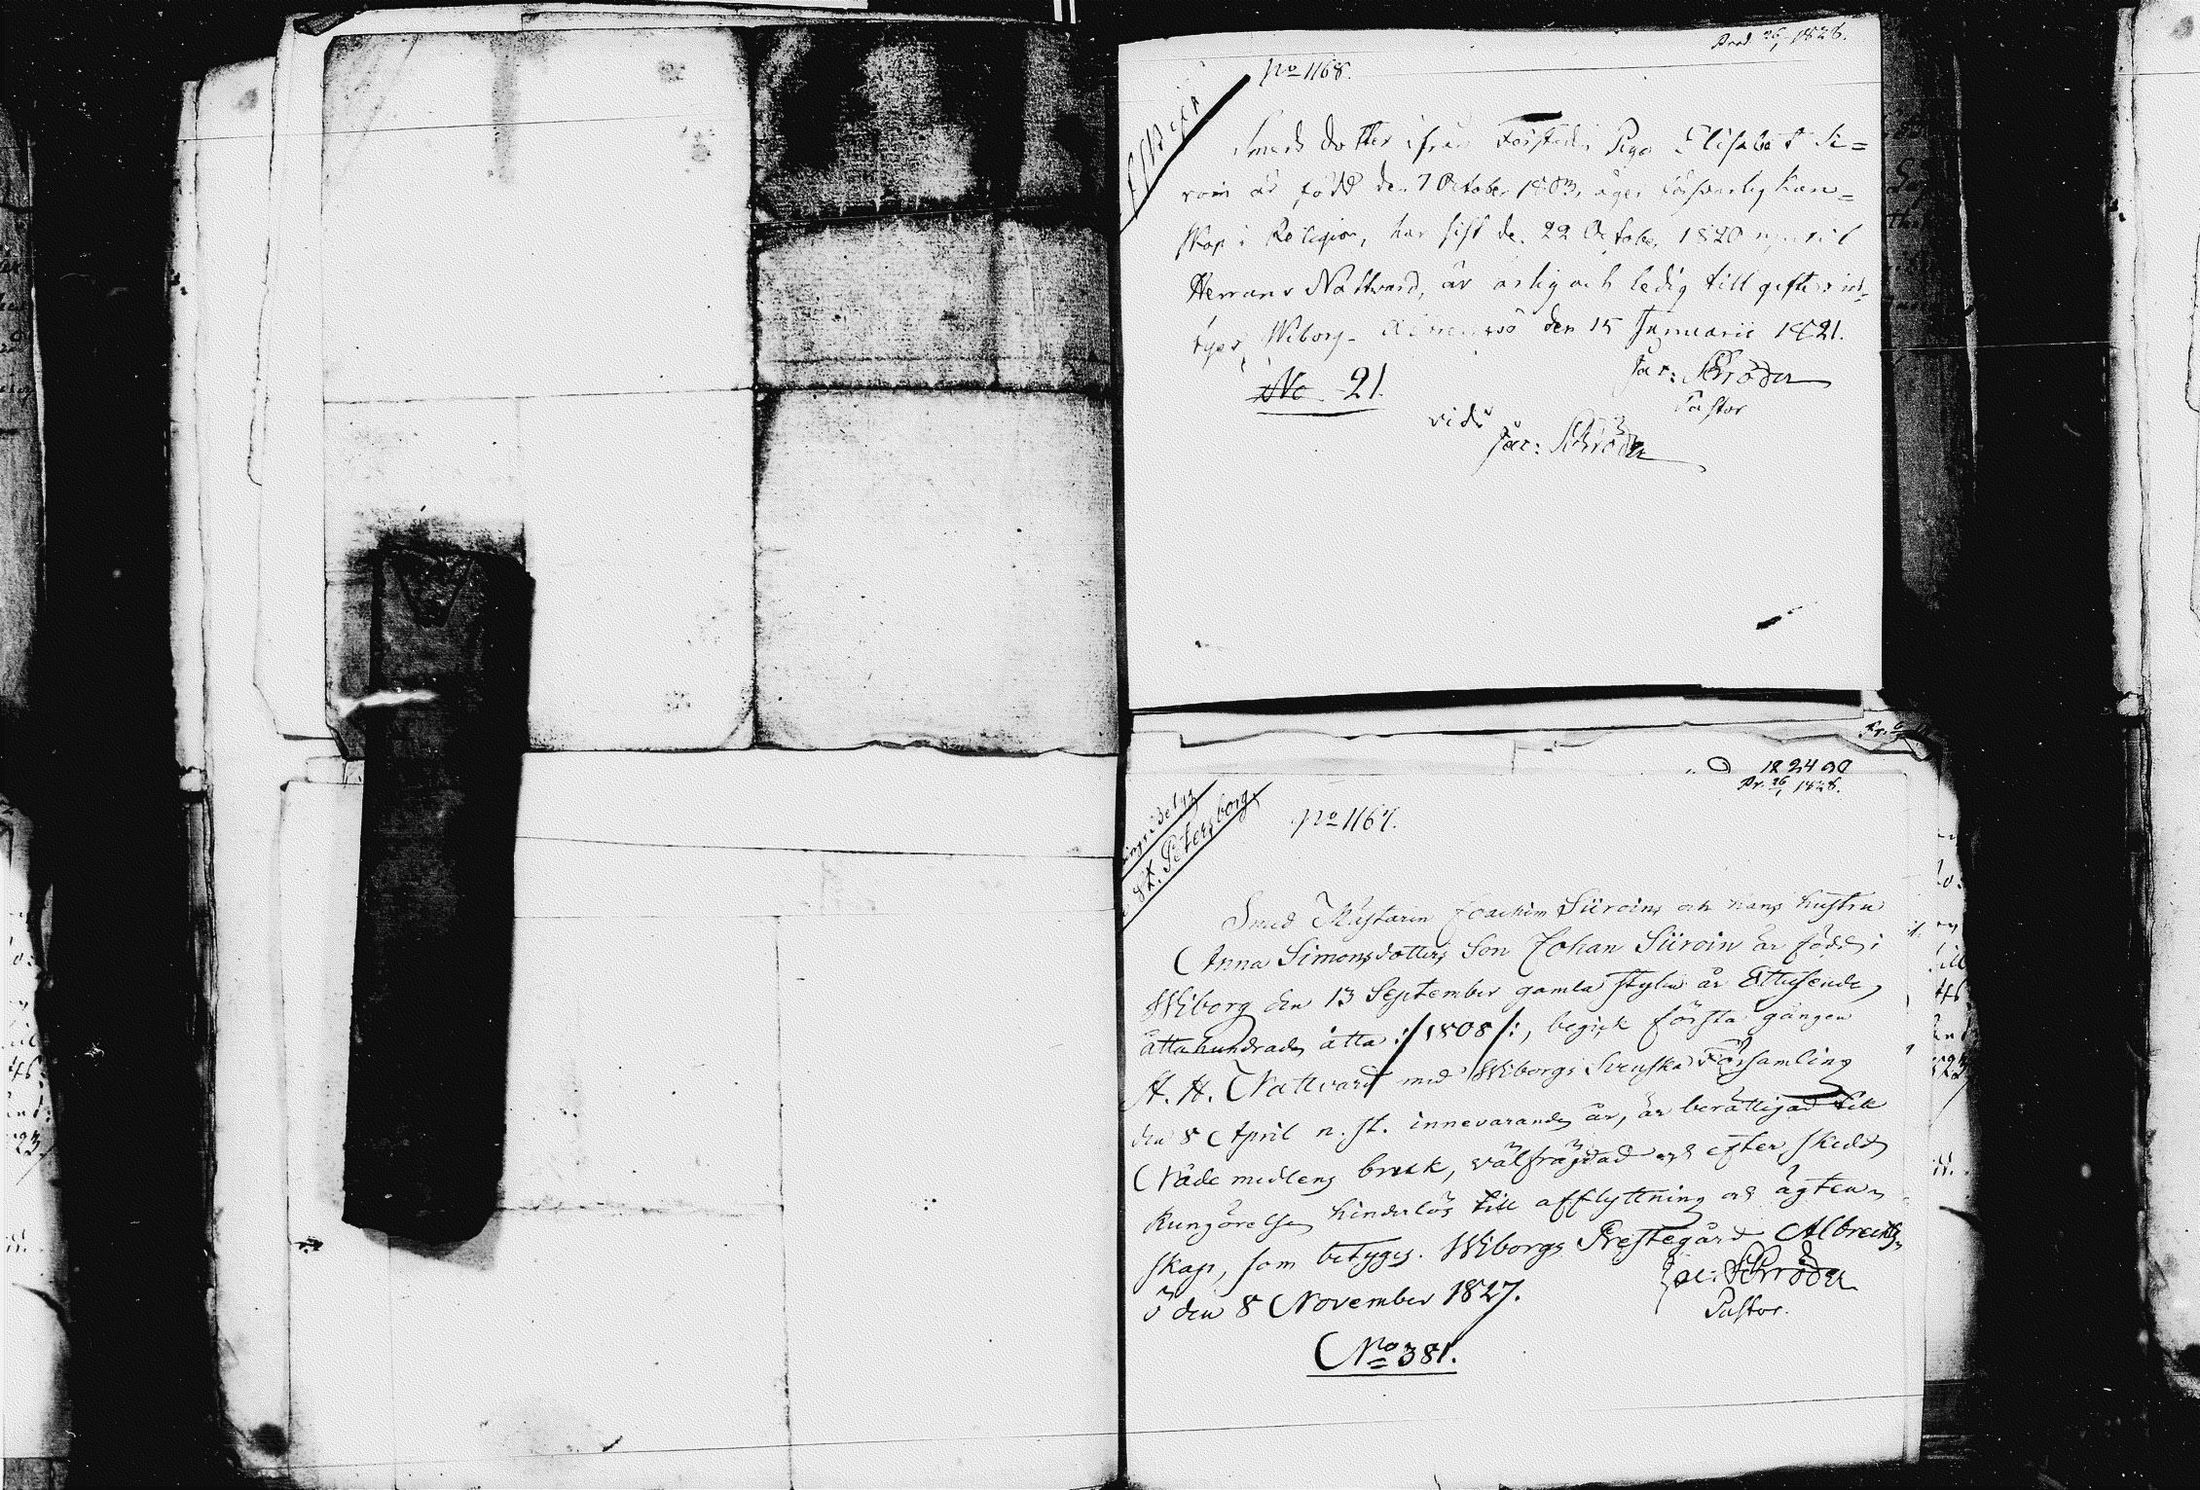 Prod. 26/1 1828.
No 1168.
Smeds dotter ifrån Förstaden Piga Elisabet Si=
roin är född den 7 October 1803, äger försvarlig kun=
skap i Religion, har sist den 22 October 1820
Herrans Nattvard, är ärlig och ledig till gifte
Wiborg den 15 Januarii 1821.
No 21.
Jac: Schröder
Pastor
vidi
Jac: Schröder
1224
Pr. 26/1 1828.
St. Petersborg.
No 1167.
Smed Mästaren Joachim Siiroins och hans hustru
Anna Simonsdotters Son Johan Siiroin är född i
Wiborg den 13 September gamla stylen år Ettusende
åttahundrade åtta :/1808/:, begick första gången
H. H. Nattvard med Wiborgs Svenska Församling
den 8 April n. st. innevarande år, är berättigad till
Nådemedlens bruk, välfrägdad och efter skedd
Kungörelse hinderlös till afflyttning och ägten-
skap, som betygas. Wiborgs Prestegård Albrechts-
ö den 8 November 1827.
Jac: Schröder
Pastor.
No 381.